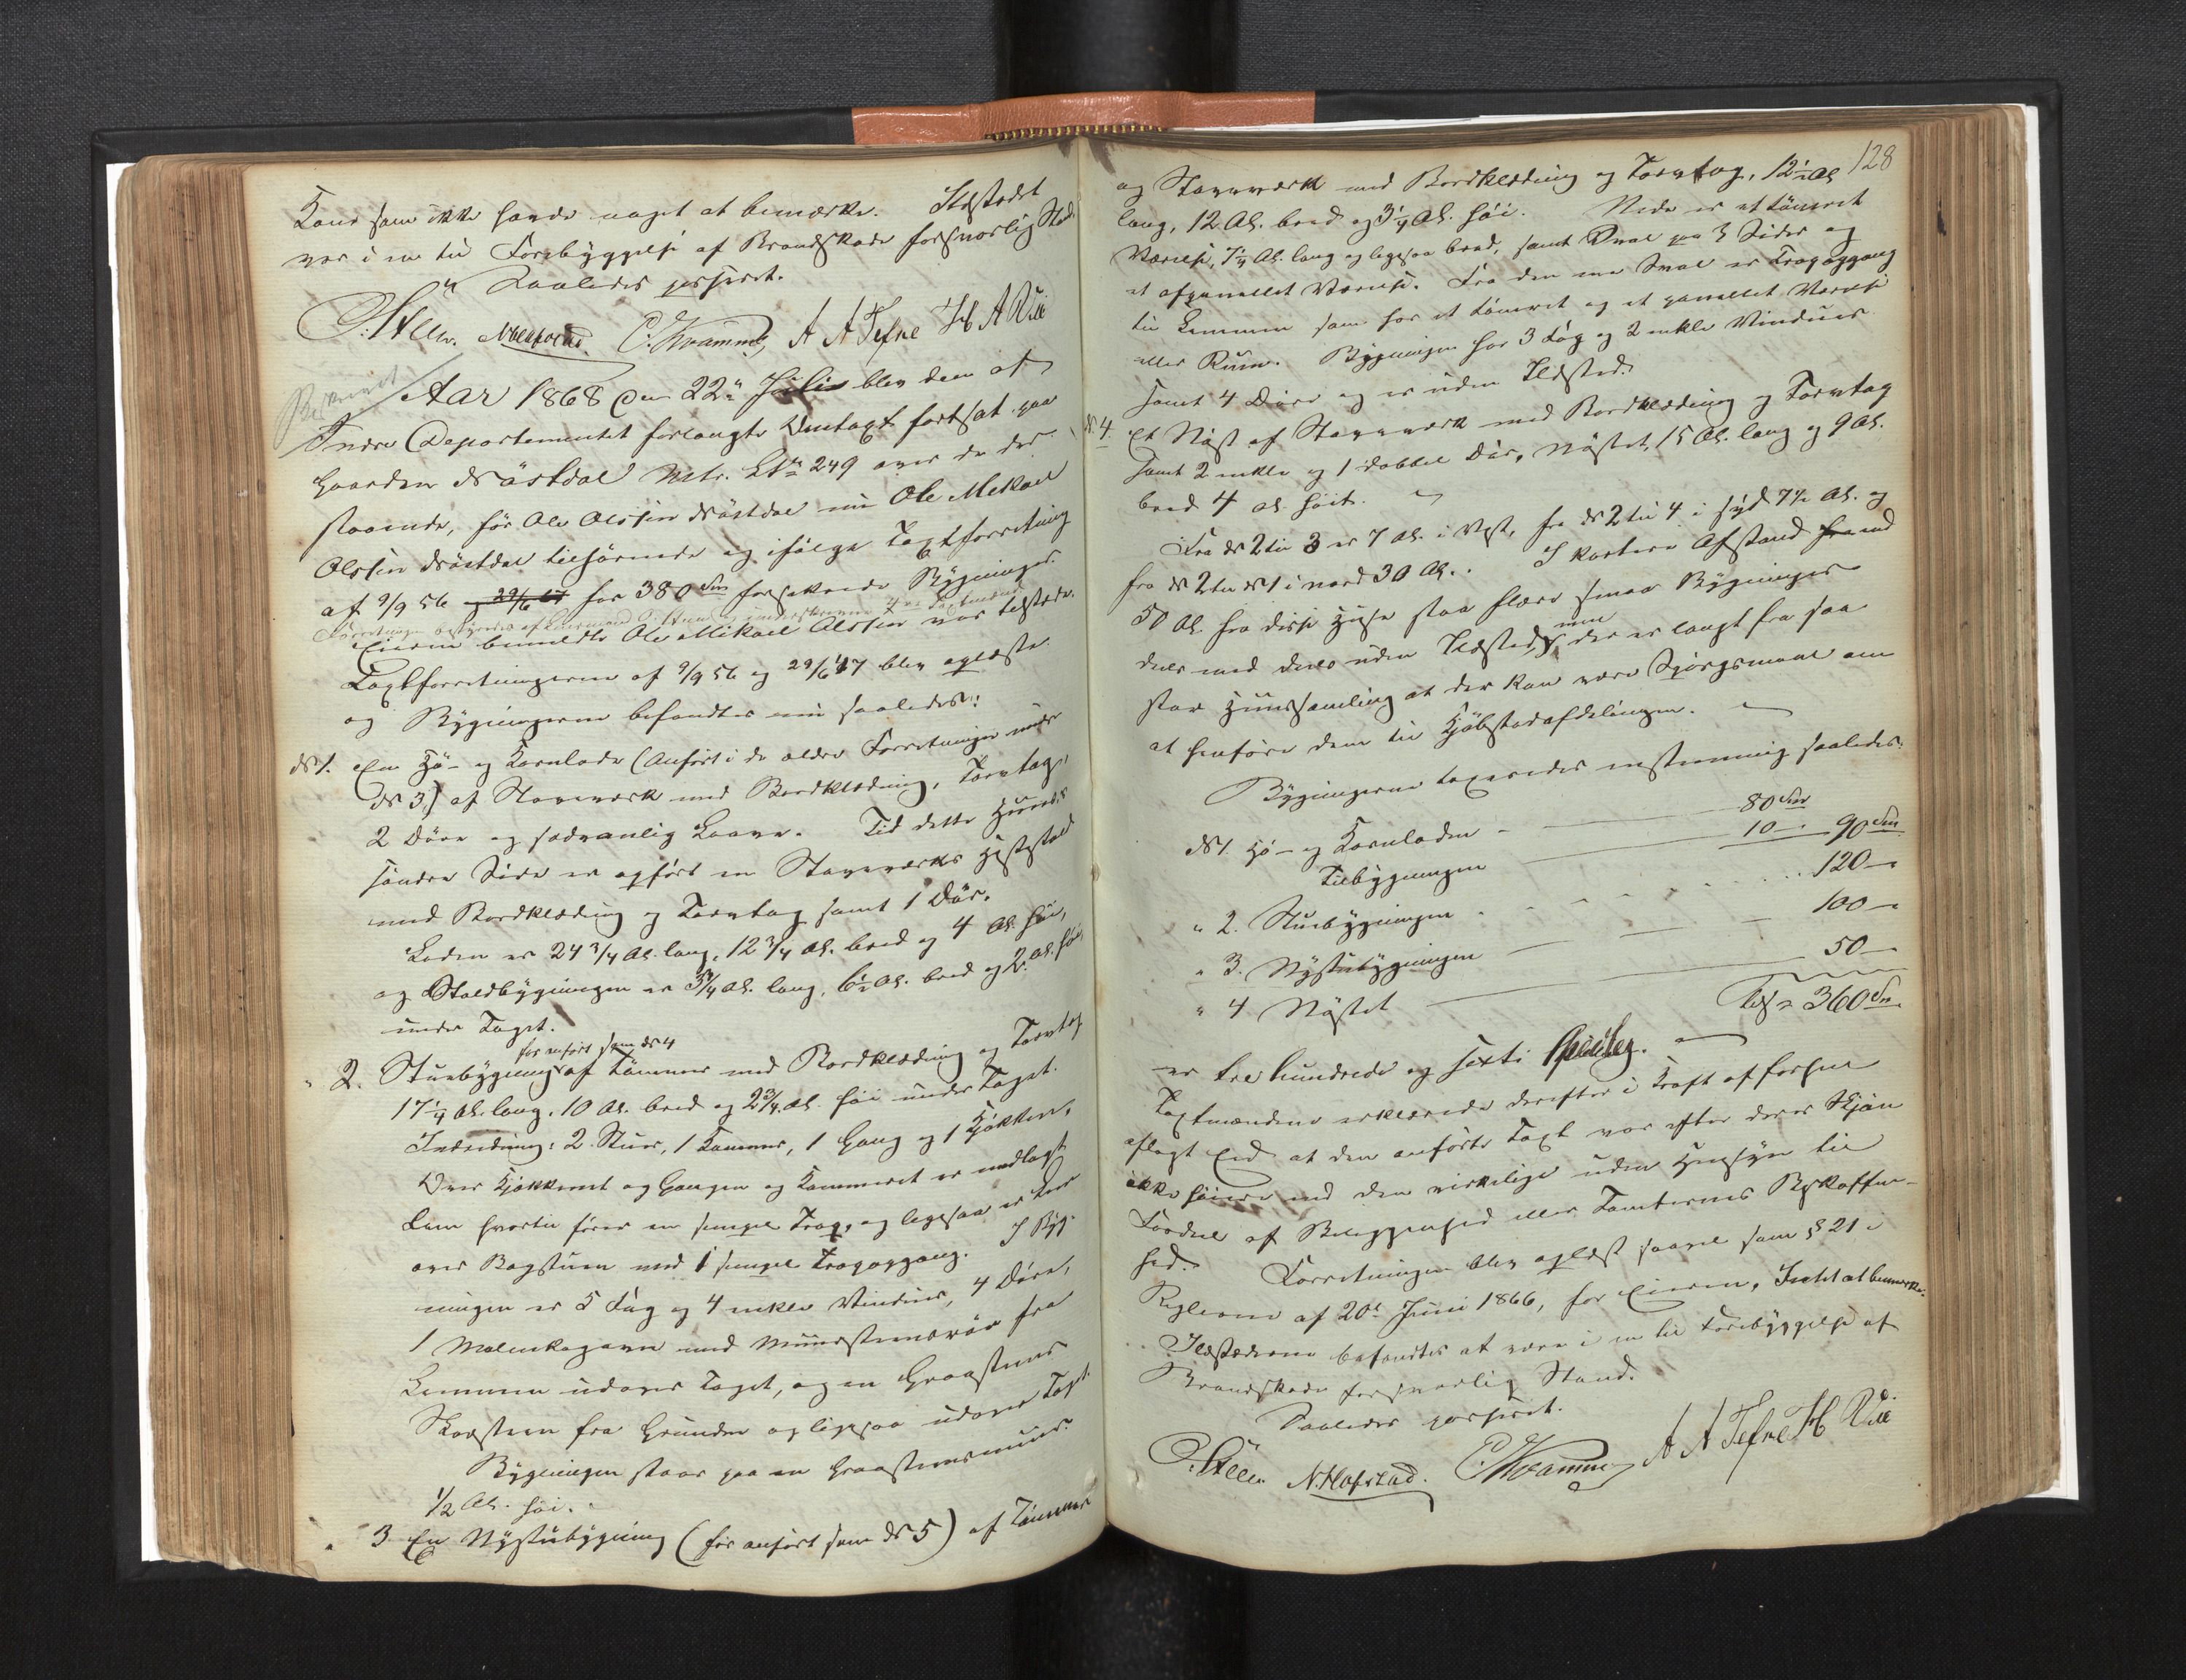 Kone som ikke havde noget at bemærke. Ildstedet
var i en til Forebyggelse af Brandskade forsvarlig Stand.
Saaledes passeret.
O. Steen. N Hofstad. C. Kvamme, A A Tefre H A Vie
Aar 1868 den 22de Juli blev den af
Indre Departementet forlangte Omtaxt fortsat paa
Gaarden Nöstdal Matr. LNr 249 over de der
staaende, för Ole Olssen Nöstdal nu Ole Mekael
Olssen Nöstdal tilhörende og ifölge Taxtforretning
af 9/9 56 og 29/6 67 for 380 Spd forsikrede Bygninger.
Forretningen bestyredes af Lensmand O. Steen underskrevne 4re Taxtmænd
Eieren bemeldte Ole Mikael Olssen var tilstede.
Taxtforretningerne af 9/9 56 og 29/6 47 blev oplæste
og Bygningerne befandtes nu saaledes:
No 1. En Hö- og Kornlade (Anfört i de ældre Forretninger under
No 3,) af Stavværk med Bordklædning, Torvtag,
2 Döre og sædvanlig Laave. Ved dette Huuses
söndre Side er opfört en Stavværks Hestestald
med Bordklædning og Torvtag samt 1 Dör.
Laden er 24 3/4 Al. lang, 12 3/4 Al. bred og 4 Al. höi,
og Staldbygningen er 5 3/4 Al. lang, 6 1/2 Al. bred og 2 Al. höi
under Taget.
för anfört som No 4
" 2. Stuebygning af Tömmer med Bordklædning og Torvtag
17 1/4 Al. lang, 10 Al. bred og 2 3/4 Al. höi under Taget.
Indredning: 2 Stuer, 1 Kammer, 1 Gang og 1 Kjökken.
Over Kjökkenet og Gangen og Kammeret er nedlagt
Lem hvortil förer en simpel Trap, og ligesaa er Lem
over Bagstuen med 1 simpel Trapopgang. I Byg-
ningen er 5 Fag og 4 enkle Vinduer, 4 Döre,
1 Malmkogeovn med Muursteensrör fra
Lemmen udover Taget, og en Graasteens
Skorsteen fra Grunden og ligesaa udover Taget.
Bygningen staar paa en Graasteensmuur.
1/2 Al. höi.
" 3 En Nystubygning (för anfört som No 5) af Tömmer
128
og Stavværk med Bordklædning og Torvtag, 12 1/2 Al
lang, 12 Al. bred og 3 1/4 Al. höi. Nede er et tömret
Værelse, 7 1/4 Al. lang og ligesaa bred, samt Sval paa 3 Sider og
et afpanellet Værelse. Fra den ene Sval er Trapopgang
til Lemmen som har et tömret og et panellet Værelse
eller Rum. Bygningen har 3 Fag og 2 enkle Vinduer
samt 4 Döre og er uden Ildsted.
No 4. Et Nöst af Stavværk med Bordklædning og Torvtag
samt 2 enkle og 1 dobbel Dör, Nöstet, 15 Al. lang og 9 Al.
bred 4 Al. höit.
Fra No 2 til 3 er 7 Al. i Vest, fra No 2 til 4 i syd 7 1/2 Al. og
fra No 2 til No 1 i nord 30 Al.. I kortere Afstand fra end
50 Al. fra disse Huse staa flere smaa Bygninger
deels med deels uden Ildsted, men der er langt fra saa
stor Huussamling at der kan være Spörgsmaal om
at henföre dem til Kjöbstadafdelingen.
Bygningerne taxeredes enstemmig saaledes:
No 1. Hö- og Kornladen 80 Spd
Tilbygningen 10 — 90 Spd
" 2. Stuebygningen 120 —
" 3. Nystubygningen 100 —
" 4 Nöstet 50 —
Tils = 360 Spd.
er tre hundrede og sexti Spdlr.
Taxtmændene erklærede derefter i Kraft af forhen
aflagt Eed at den anförte Taxt var efter deres Skjön
ikke höiere end den virkelige uden Hensyn til
Fordeel af Beliggenhed eller Tomternes Beskaffen-
hed. Forretningen blev oplæst saavel som § 21 i
Reglerne af 20de Juni 1866, for Eieren, Intet at bemærke.
Ildstederne befandtes at være i en til Forebyggelse af
Brandskade forsvarlig Stand.
Saaledes passeret.
O. Steen N. Hofstad. C. Kvamme A A Tefre H Vie